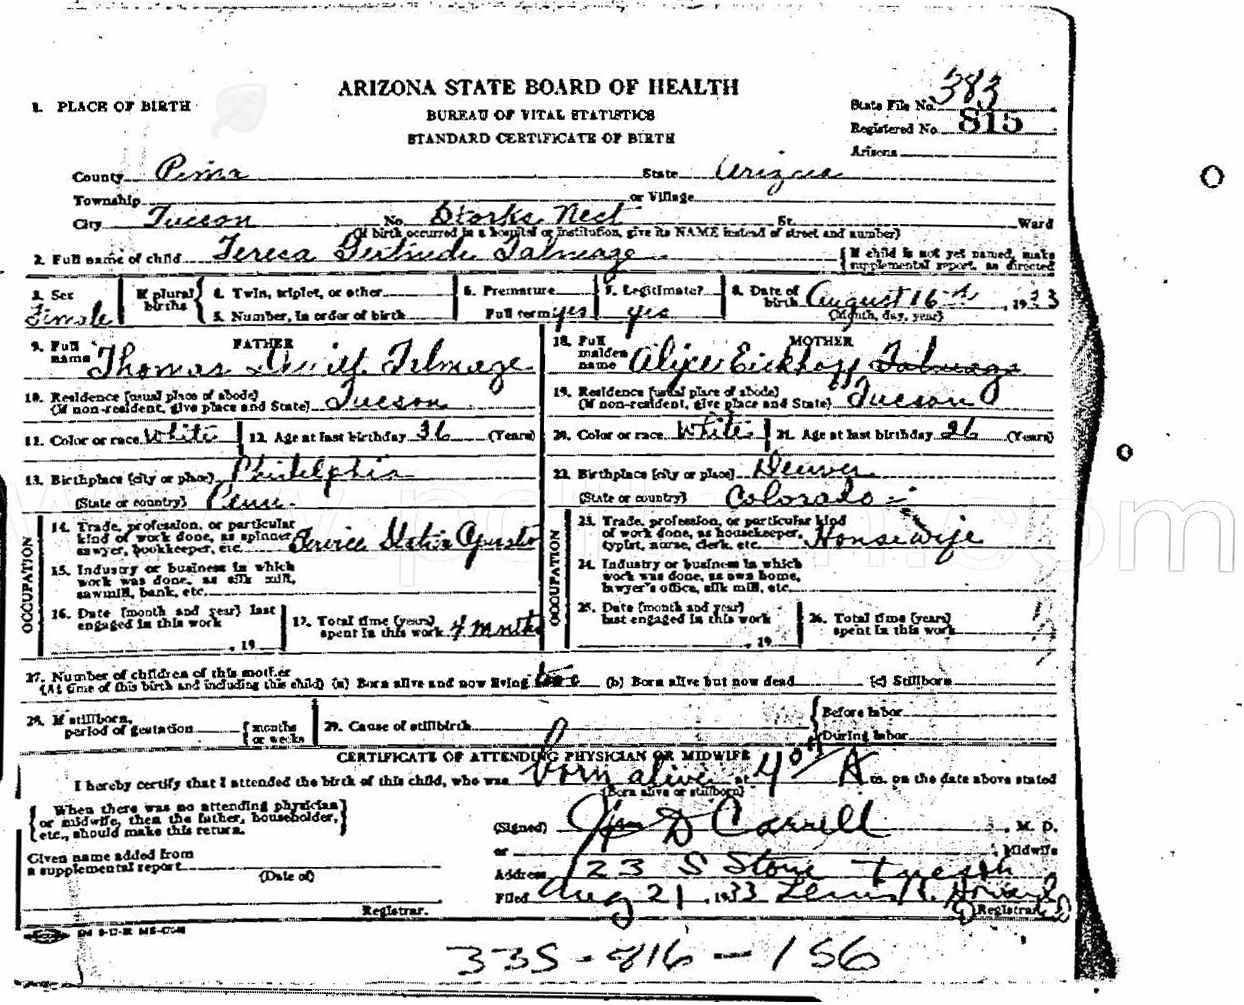 ARIZONA STATE BOARD OF HEALTH
BUREAU OF VITAL STATISTICS
STANDARD CERTIFICATE OF BIRTH
1. PLACE OF BIRTH
State File No. 383
Registered No. 815
Arizona
County Pima State Arizona
Township or Village
City Tucson No. Storks Nest St. Ward
(If birth occurred in a hospital or institution, give its NAME instead of street and number)
2. Full name of child Teresa Gertrude Talmage {If child is not yet named, make supplemental report, as directed
3. Sex Female If plural births { 4. Twin, triplet, or other 5. Number, in order of birth 6. Premature Full term yes 7. Legitimate? yes 8. Date of birth August 16th, 1933 (Month, day, year)
FATHER
9. Full name Thomas Talmage
10. Residence (usual place of abode) (If non-resident, give place and State) Tucson
11. Color or race White 12. Age at last birthday 36 (Years)
13. Birthplace (city or place) Philelphia
(State or country) Penn.
OCCUPATION
14. Trade, profession, or particular kind of work done, as spinner sawyer, bookkeeper, etc. Service Station
15. Industry or business in which work was done, as silk mill, sawmill, bank, etc.
16. Date (month and year) last engaged in this work , 19
17. Total time (years) spent in this work 4 months
MOTHER
18. Full maiden name Alice Eickhoff Talmage
19. Residence (usual place of abode) (If non-resident, give place and State) Tucson
20. Color or race White 21. Age at last birthday 26 (Years)
22. Birthplace (city or place) Denver
(State or country) Colorado
OCCUPATION
23. Trade, profession, or particular kind of work done, as housekeeper, typist, nurse, clerk, etc. Housewife
24. Industry or business in which work was done, as own home, lawyer's office, silk mill, etc.
25. Date (month and year) last engaged in this work , 19
26. Total time (years) spent in this work
27. Number of children of this mother
(At time of this birth and including this child) (a) Born alive and now living two (b) Born alive but now dead (c) Stillborn
28. If stillborn, period of gestation {months or weeks 29. Cause of stillbirth {Before labor During labor
CERTIFICATE OF ATTENDING PHYSICIAN OR MIDWIFE
I hereby certify that I attended the birth of this child, who was born alive at 4 A m. on the date above stated
(Born alive or stillborn)
{When there was no attending physician or midwife, then the father, householder, etc., should make this return.}
(Signed) Jim D Carrell M. D.
or Midwife
Given name added from a supplemental report (Date of)
Address 23 S Stone Tucson
Filed Aug 21, 1933 Lewis Howard Registrar
Registrar.
335-816-156